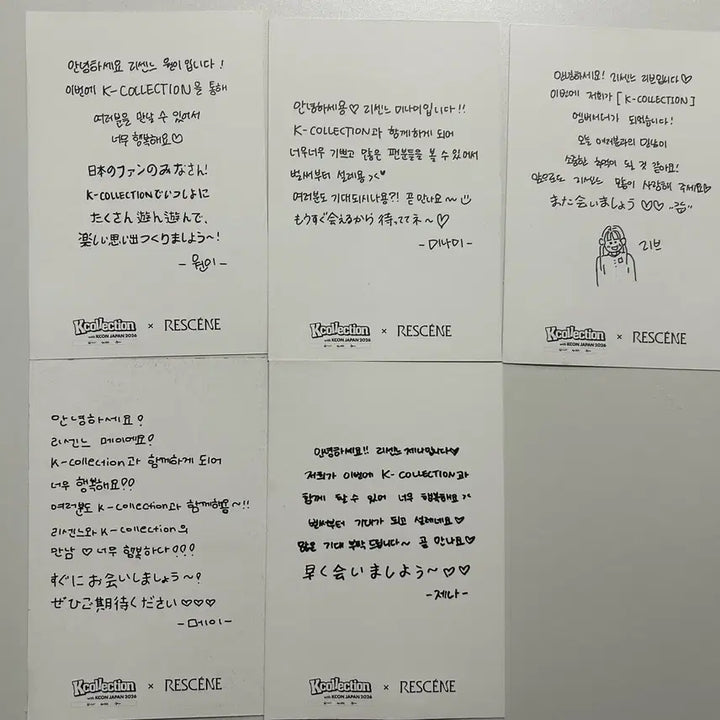 안녕하세요 리센느 원이입니다!
이번에 K-COLLECTION을 통해
여러분을 만날 수 있어서
너무 행복해요♡
日本のファンのみなさん!
K-COLLECTIONでいっしょに
たくさん遊ん遊んで、
楽しい思い出つくりましょう~!
- 원이 -
Kcollection
with KCON JAPAN 2026
× RESCENE
안녕하세용♡ 리센느 미나미입니다!!
K-COLLECTION과 함께하게 되어
너무너무 기쁘고 많은 팬분들을 볼 수 있어서
벌써부터 설레용 >.<♥
여러분도 기대되시나용?! 곧 만나요~
もうすぐ会えるから 待っててネ~♡
- 미나미 -
Kcollection
with KCON JAPAN 2026
× RESCENE
안녕하세요! 리센느 리브입니다♡
이번에 저희가 [K-COLLECTION]
엠버서더가 되었습니다!
오늘 여러분과의 만남이
소중한 추억이 될 것 같아요!
앞으로도 리센느 많이 사랑해 주세요♡
また会いましょう ♡♡
리브
Kcollection
with KCON JAPAN 2026
× RESCENE
안녕하세요?
리센느 메이에요?
K-collection과 함께하게 되어
너무 행복해요??
여러분도 K-collection과 함께해용~!!
리센느와 K-collection의
만남 ♡ 너무 행복하다???
すぐに お会いしましょう~?
ぜひご期待ください♡♡♡
- 메이 -
Kcollection
with KCON JAPAN 2026
× RESCENE
안녕하세요!! 리센느 제나입니다♥
저희가 이번에 K-COLLECTION과
함께 할 수 있어 너무 행복해요 >.<
벌써부터 기대가 되고 설레네요♥
많은 기대 부탁드립니다~ 곧 만나요♡
早く会いましょう~♡♡
- 제나 -
Kcollection
with KCON JAPAN 2026
× RESCENE